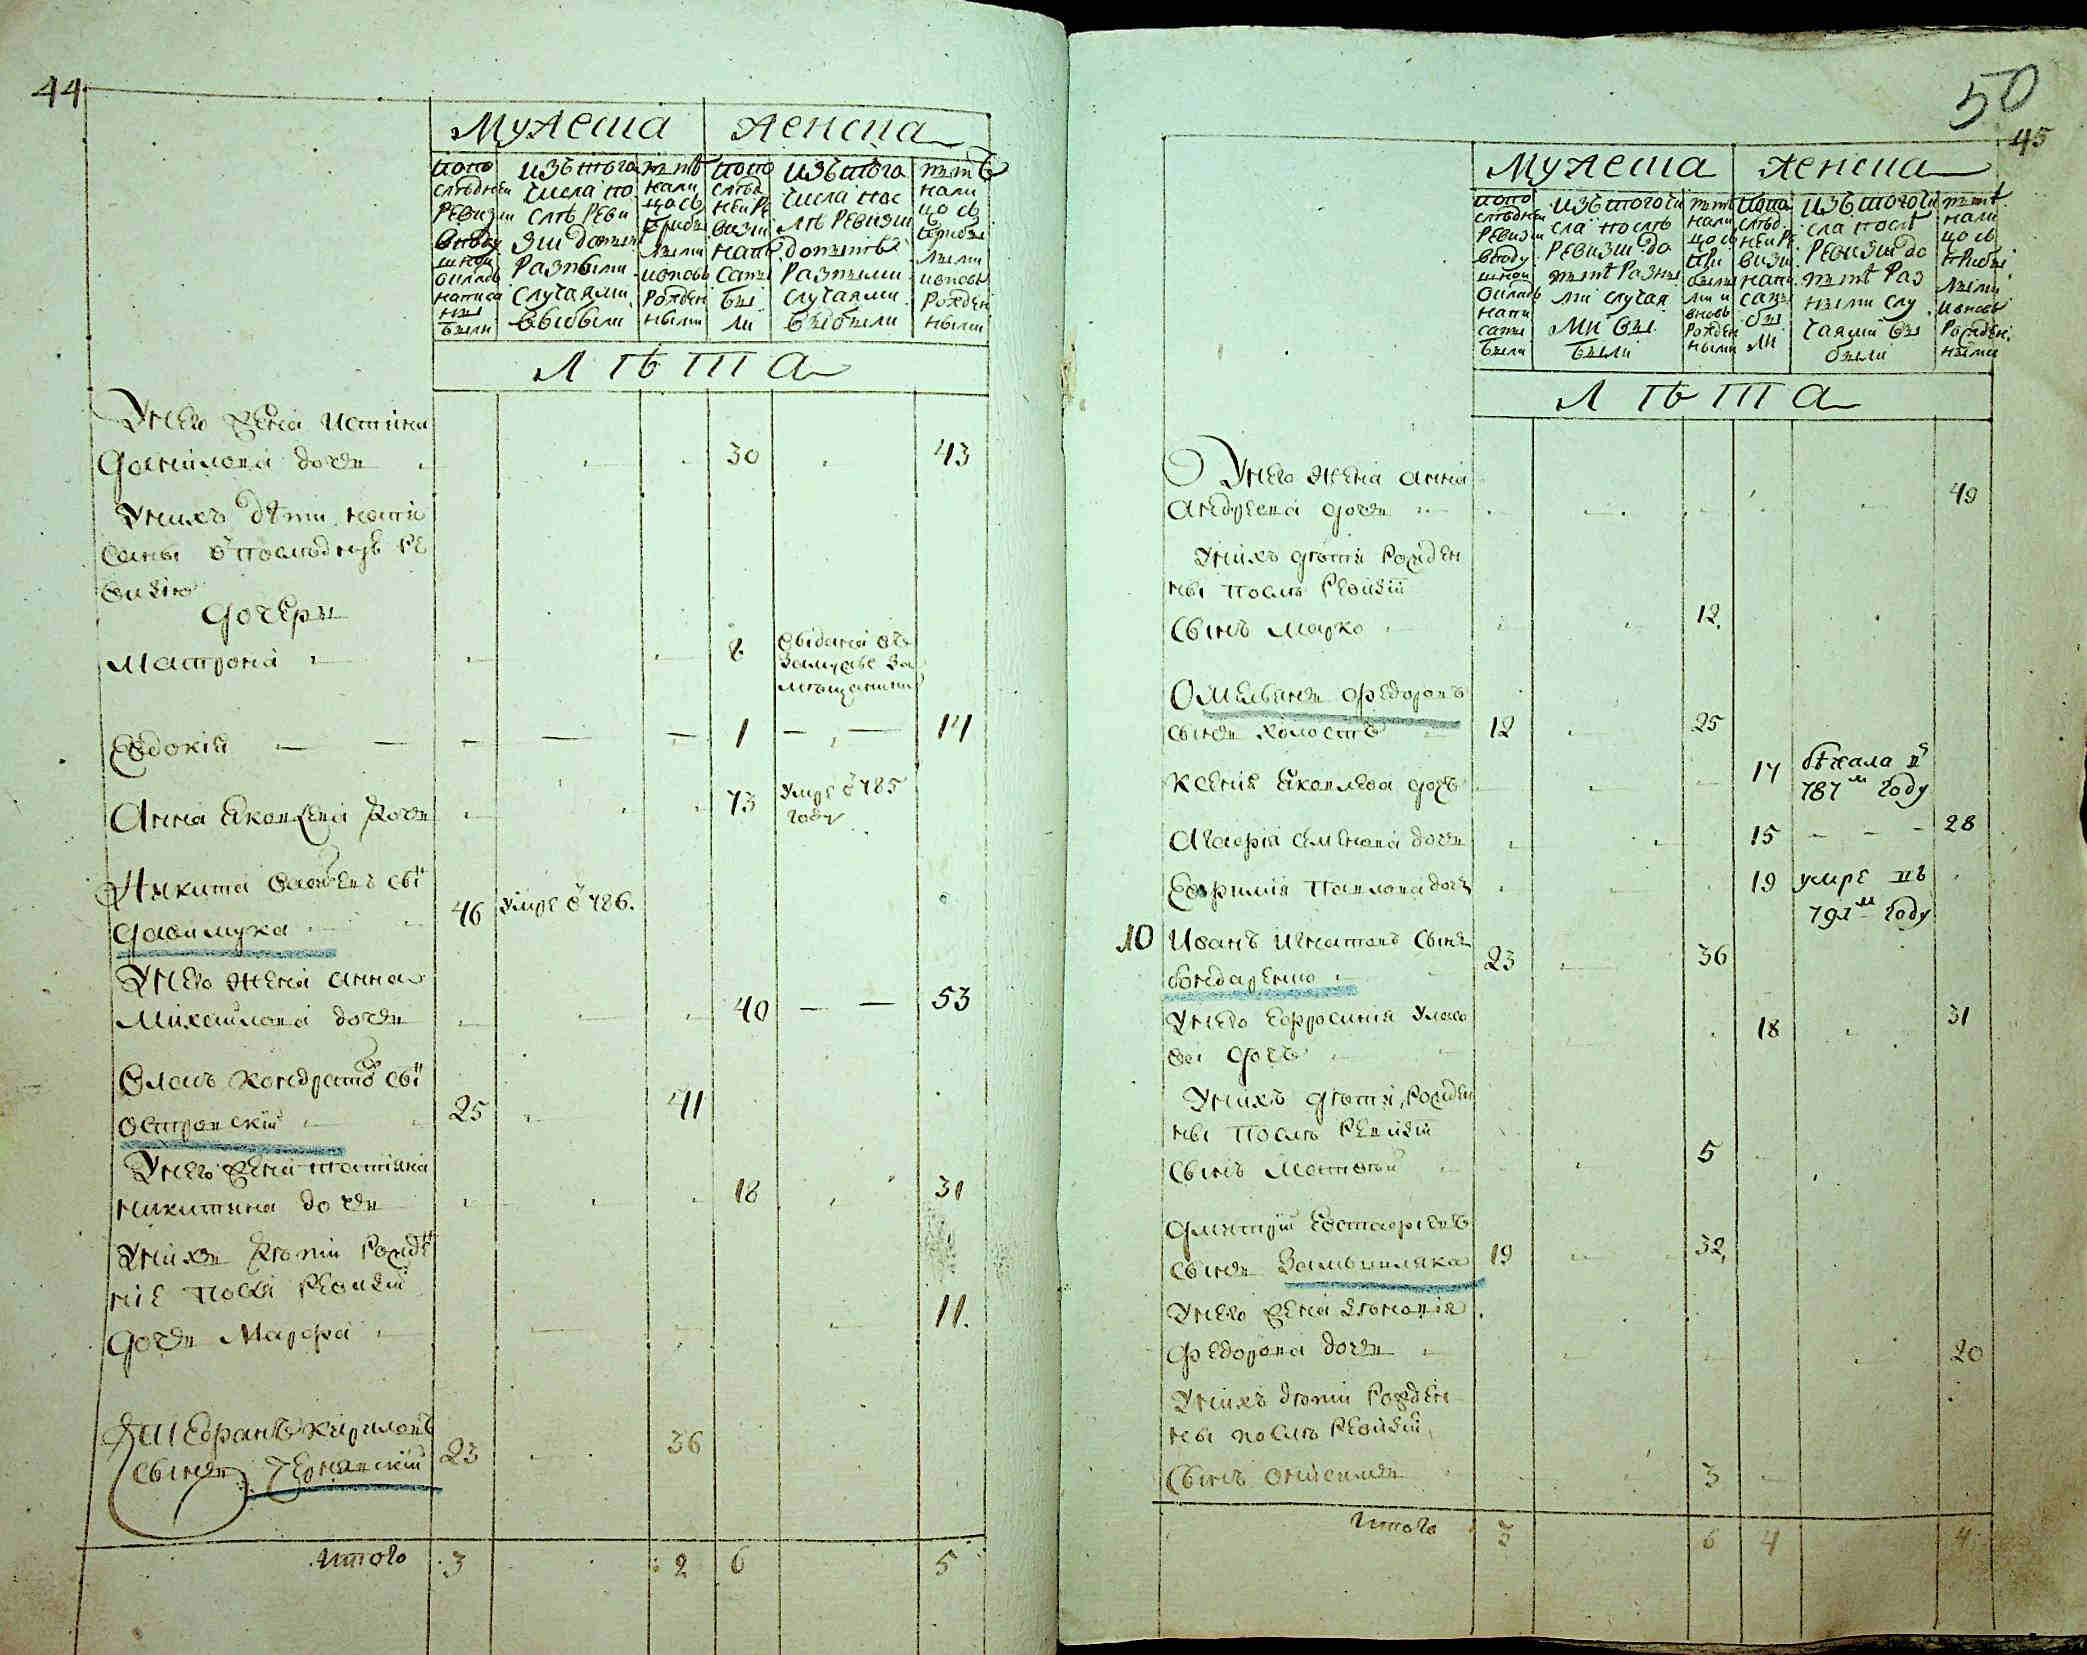 44
Мужеска
женска
попо
слѣдней
ревизи
въподу
шной
окладъ
написа
ны
были
изътого
числа по
слѣ реви
зіи донынѣ
разными
случаями
выбыли
нынѣ
нали
цо съ
прибы
лыми
ивновь
рожден
ными
попо
слѣд
ней ре
визіи
напи
саны
бы
ли
изътого
числа пос
лѣ ревизіи
донынѣ
разными
случаями
выбыли
нынѣ
нали
цо съ
прибы
лыми
ивновь
рожден
ными
лѣта
Унего жена Устина
Данилова дочь 30 43
Унихъ дѣти напи
саны впослѣднюю ре
визію
Дочери
Матрона 8 выдана въ
замужье за
мѣщанина
Евдокія 1 14
Анна Яковлева дочь 73 умре в 785
году
Никита Савинъ сы
46 умре в 786.
Унего жена Анна
Михайлова дочь 40 53
Власъ Кондратовъ сы
Островскій 25 41
Унего жена Татіяна
Никитина дочь 18 31
Унихъ дѣти рожде
ніе послѣ ревизіи
Дочь Марфа 11.
Кириловъ
сынъ Чернявскій 23 36
Итого 3 2 6 5
50
45
Мужеска
женска
попо
слѣдней
ревизи
вподу
шной
окладъ
напи
саны
были
изътогочи
сла послѣ
ревизіи до
нынѣ разны
ми случая
ми вы
были
нынѣ
нали
цо съ
при
былы
ми и
вновь
рожден
ными
попо
слѣд
ней ре
визи
напи
саны
бы
ли
изътогочи
сла послѣ
ревизіи до
нынѣ раз
ными слу
чаями вы
были
нынѣ
нали
цо съ
прибы
лыми
ивновь
рожден
ными
лѣта
Унего жена Анна
Андреева дочь 49
Унихъ дѣти рожден
ны послѣ ревизіи
Сынъ Марко 12.
Омельянъ Федоровъ
сынъ холостъ 12 25
Ксенія Яковлева дочь 14 бѣжала въ
787м году
Агафія Семенова дочь 15 28
Евфимія Павлова дочь 19 умре въ
791м году
10 Иванъ Игнатовъ сынъ
Бондаренко 23 36
Унего Ефросинія Уласо
ва дочь 18 31
Унихъ дѣти рожден
ны послѣ ревизіи
Сынъ Матвѣй 5
Дмитрій Евстафіевъ
сынъ 19 32,
Унего жена
Федорова дочь 20
Унихъ дѣти рожден
ны послѣ ревизіи,
Сынъ Онисимъ 3
Итого 3 6 4 4